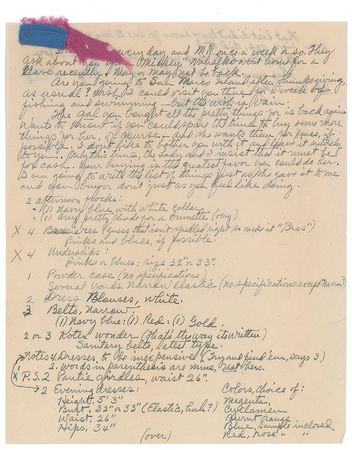 every day and M.P. once a week or so. They
ask about you. "Mickey" went home for a
leave recently. May or may not be back.
Are you going to San Marco Island after Thanksgiving,
as usual? Wish I could visit you there for a week of
fishing and swimming - but the wish is vain.
The gal you bought all the pretty things for is back again.
Wants to know if you could take the time to buy some more
things for her, of course. And she wants them for Xmas, if
possible. I don't like to bother you with it and leave it entirely
to you. Only this time, she says, and I insist that it must be
for cash. Your buying is the greatest favor you could do her.
I am going to write the list of things just as she gave it to me
and you buy or don't just as you feel like doing.
2 afternoon frocks:
(1) Navy blue with white collar
(1) Any pretty shade for a brunette (very)
X 4 Brassieres (guess that isn't spelled right so make it "Bras")
Pinks and blues, if possible.
X 4 Underslips:
Pinks or blues; size 32" or 33"
1 Powder case (no specifications)
Several yards narrow elastic (no specifications except narrow)
2 Dress Blouses, white.
3 Belts, narrow.
(1) Navy blue: (1) Red: (1) Gold.
2 or 3 Kotex wonder (That's the way it's written)
Sanitary belts, latest type.
Notes: Dresses, to be inexpensive (Try and find 'em, says I)
2. Words in parenthesis are mine, not hers.
X P.S. 2 Pantie girdles, waist 26".
2 Evening dresses: Colors, choice of:
Height, 5' 3" Magenta,
Bust, 32" or 33" (Elastic, huh?) Cyclamen
Waist, 26" Burnt orange
Hips, 34" Blue, sample inclosed
(over) Red, rose " "